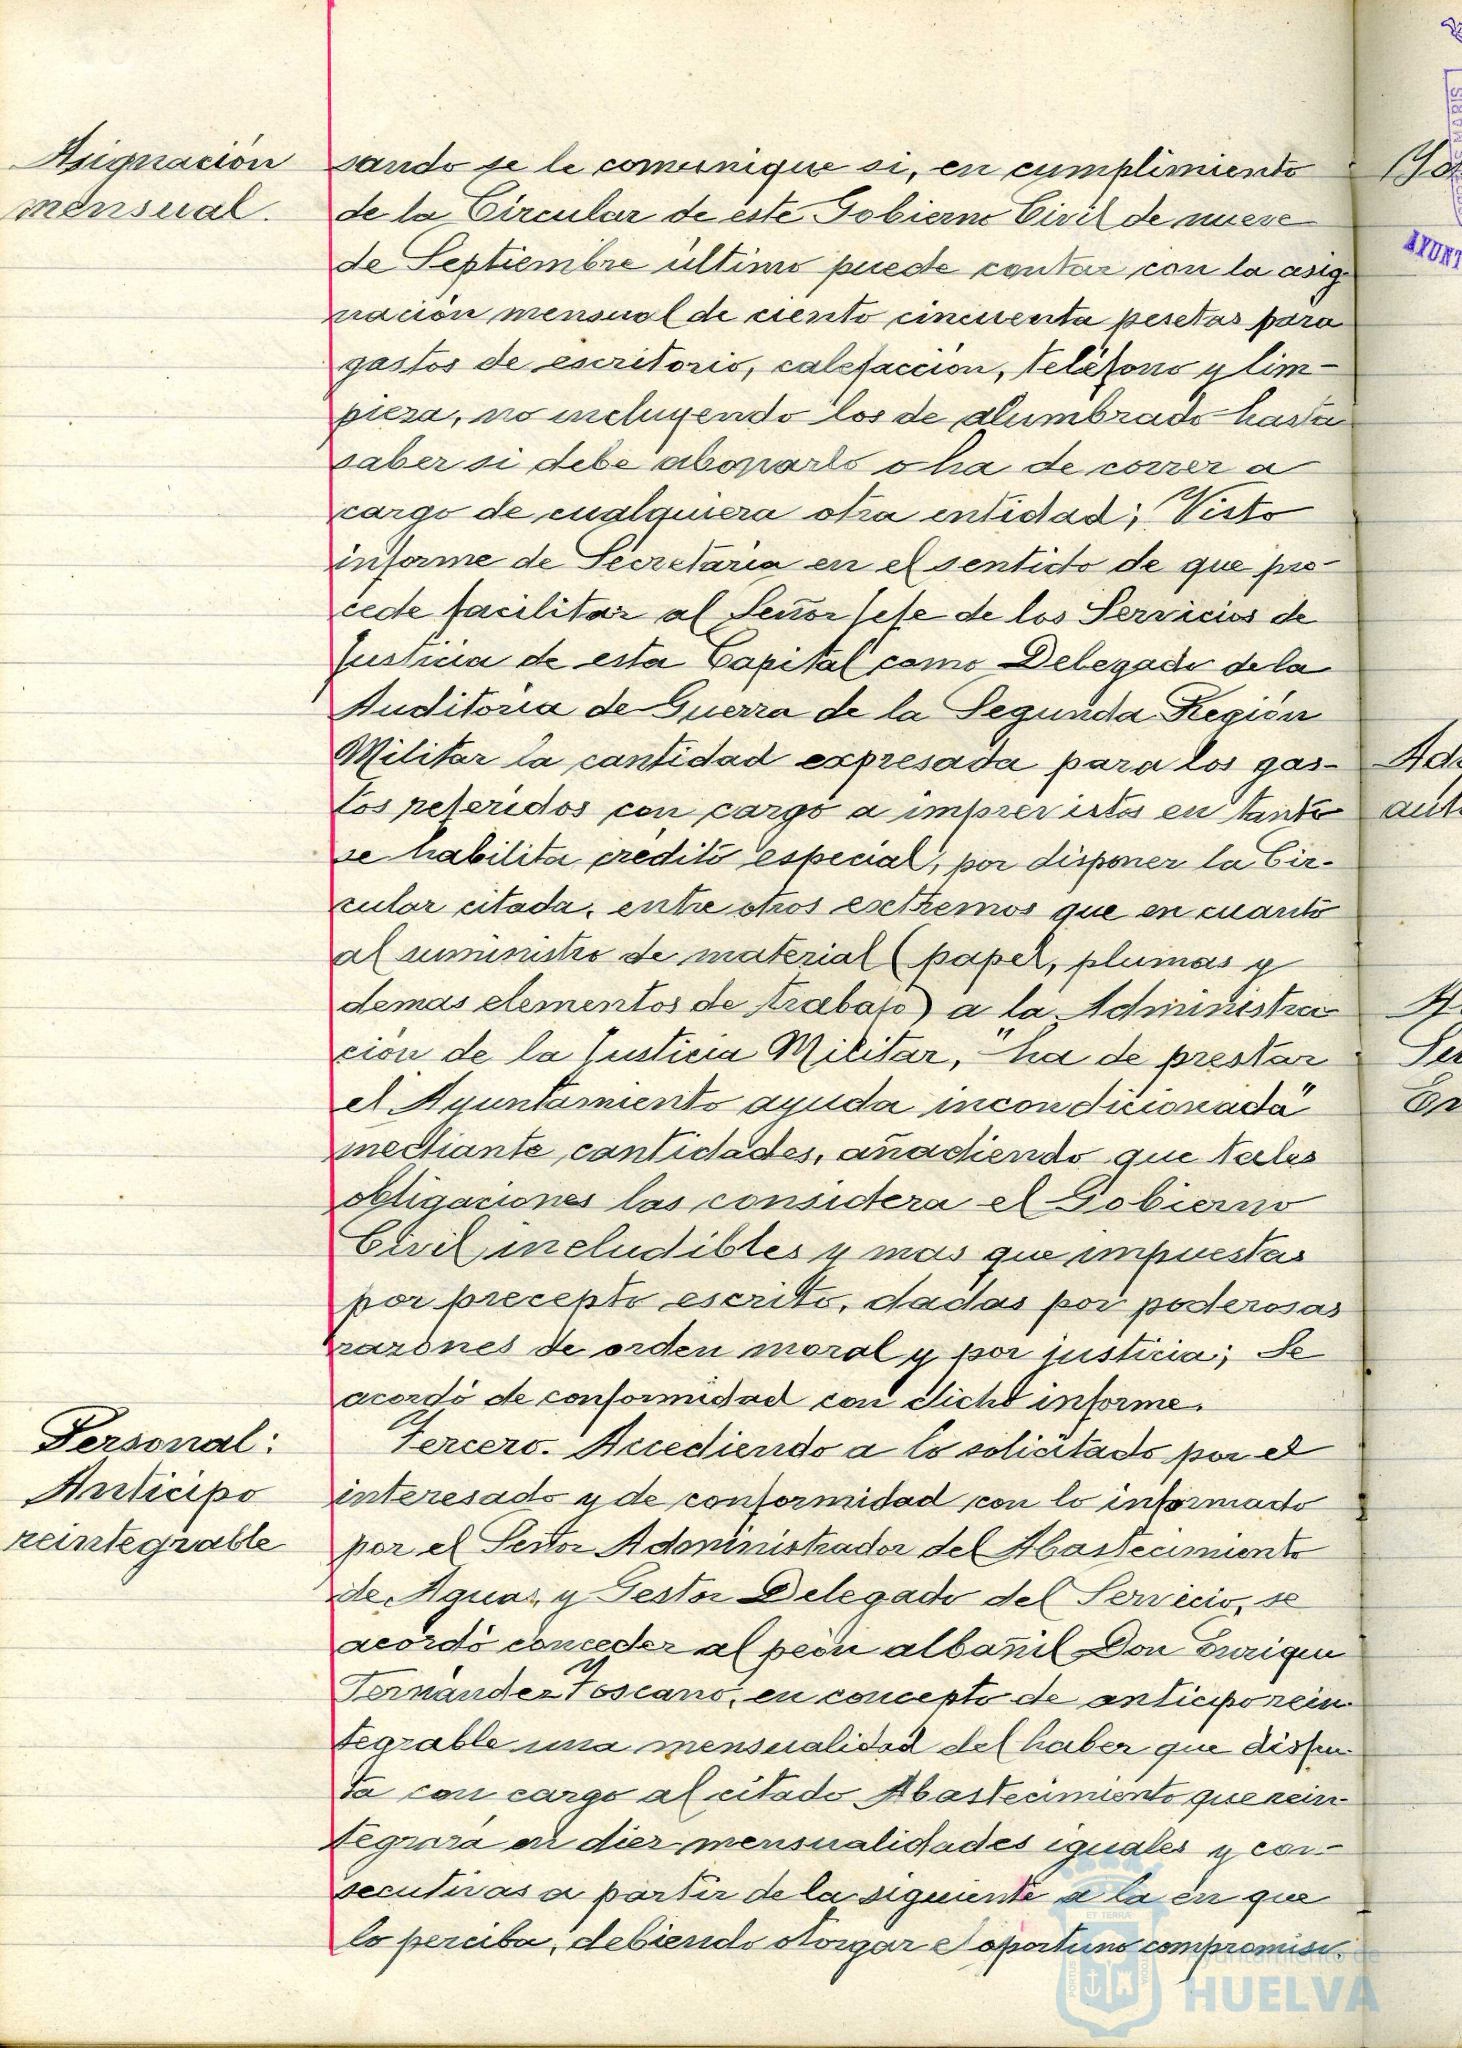 Asignación
mensual.
sando se le comunique si, en cumplimiento
de la Circular de este Gobierno Civil de nueve
de Septiembre último puede contar con la asig-
nación mensual de ciento cincuenta pesetas para
gastos de escritorio, calefacción, teléfono y lim-
pieza, no incluyendo los de alumbrado hasta
saber si debe abonarlo o ha de correr a
cargo de cualquiera otra entidad; Visto
informe de Secretaria en el sentido de que pro-
cede facilitar al Señor Jefe de los Servicios de
Justicia de esta Capital como Delegado de la
Auditoria de Guerra de la Segunda Región
Militar la cantidad expresada para los gas-
tos referidos con cargo a imprevistos en tanto
se habilita crédito especial, por disponer la Cir-
cular citada, entre otros extremos que en cuanto
al suministro de material (papel, plumas y
demas elementos de trabajo) a la Administra-
ción de la Justicia Militar, "ha de prestar
el Ayuntamiento ayuda incondicionada"
mediante cantidades, añadiendo que tales
obligaciones las considera el Gobierno
Civil ineludibles y mas que impuestas
por precepto escrito, dadas por poderosas
razones de orden moral y por justicia; Se
acordó de conformidad con dicho informe.
Personal:
Anticipo
reintegrable
Tercero. Accediendo a lo solicitado por el
interesado y de conformidad con lo informado
por el Señor Administrador del Abastecimiento
de Aguas, y Gestor Delegado del Servicio, se
acordó conceder al peón albañil Don Enrique
Fernández Toscano, en concepto de anticipo rein-
tegrable una mensualidad del haber que disfru-
ta con cargo al citado Abastecimiento que rein-
tegrará en diez mensualidades iguales y con-
secutivas a partir de la siguiente a la en que
lo perciba, debiendo otorgar el oportuno compromiso.
Ayuntamiento de
HUELVA